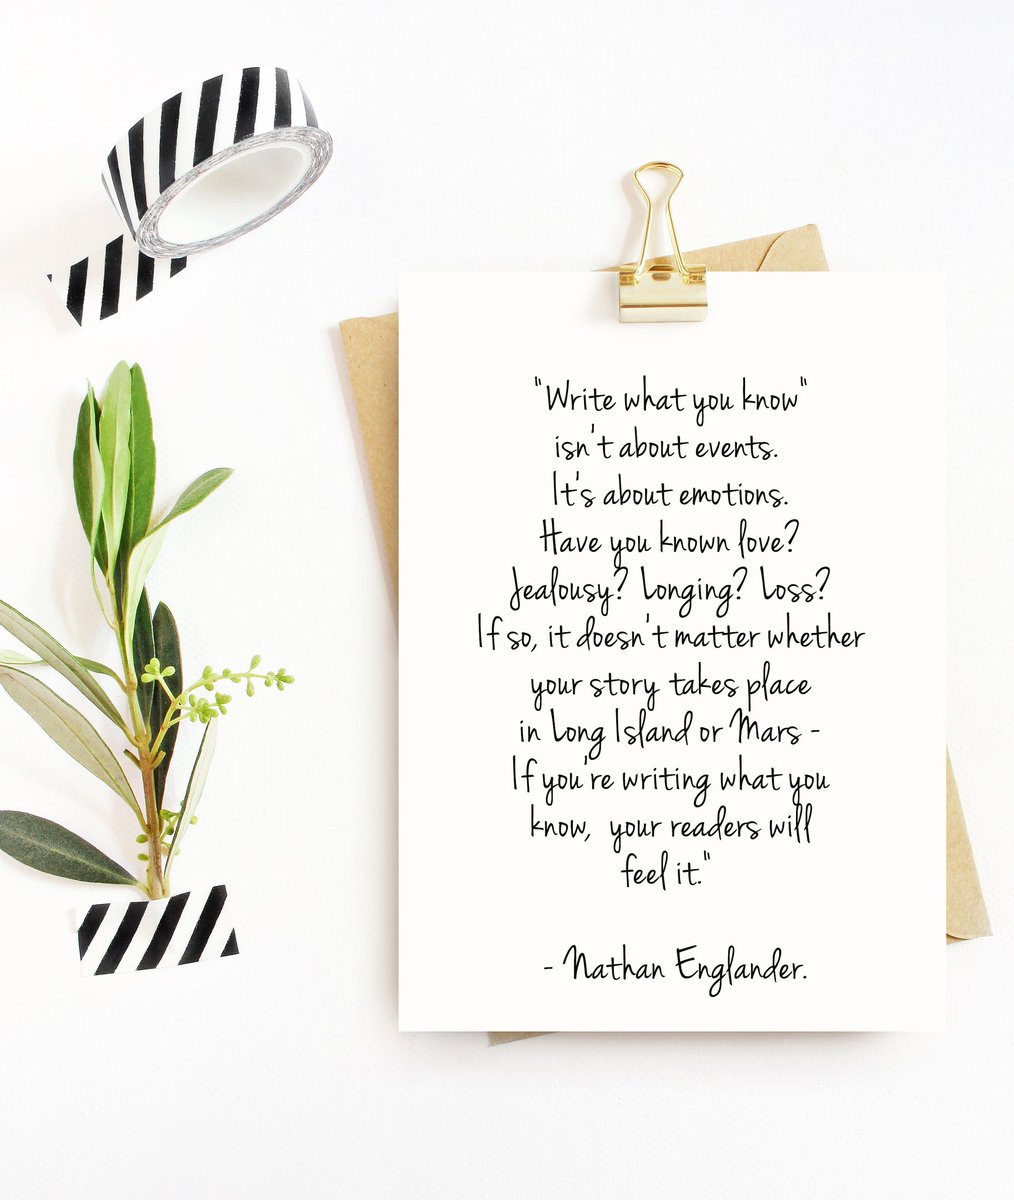 "Write what you know"
isn't about events.
It's about emotions.
Have you known love?
Jealousy? Longing? Loss?
If so, it doesn't matter whether
your story takes place
in Long Island or Mars -
If you're writing what you
know, your readers will
feel it."
- Nathan Englander.